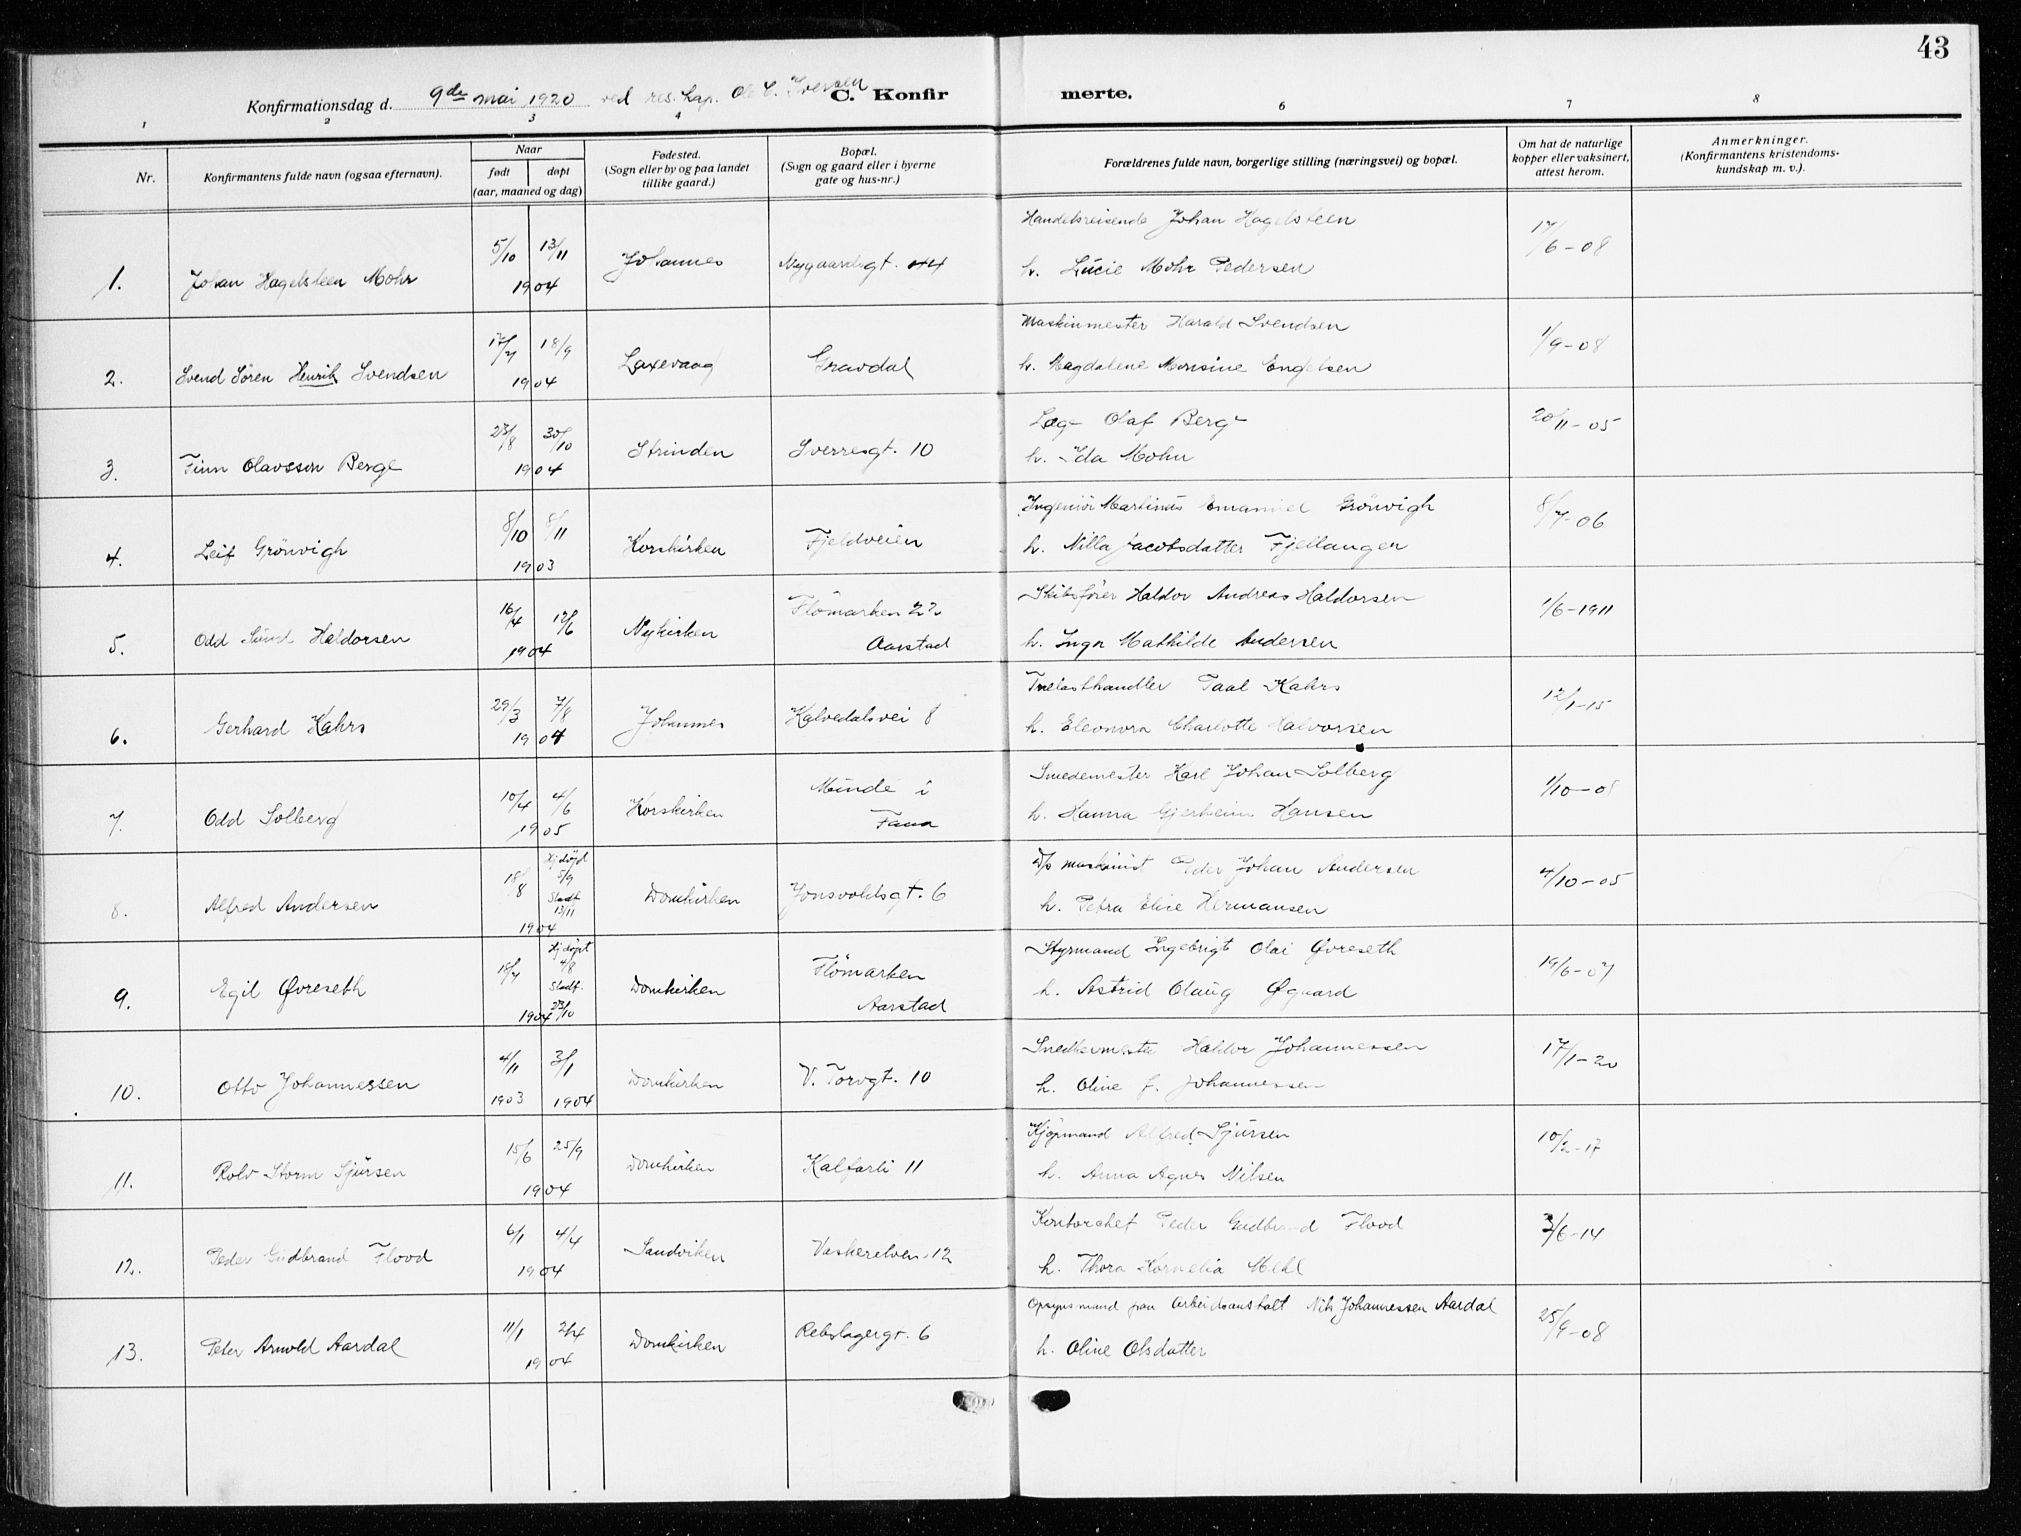 43
Konfirmationsdag d. 9de mai 1920 ved res. kap. Ole C. Iversen C. Konfirmerte.
1 2 3 4 6 7 8
Nr.
Konfirmantens fulde navn (ogsaa efternavn).
Naar
født døpt
(aar, maaned og dag)
Fødested.
(Sogn eller by og paa landet
tillike gaard.)
Bopæl.
(Sogn og gaard eller i byerne
gate og hus-nr.)
Forældrenes fulde navn, borgerlige stilling (næringsvei) og bopæl.
Om hat de naturlige
kopper eller vaksinert,
attest herom.
Anmerkninger.
(Konfirmantens kristendoms-
kundskap m. v.).
Handelsreisende Johan Hagelsteen
5/10 13/11 17/6-08
1. Johan Hagelsteen Mohr Johannes Nygaardsgt. 44 h. Lucie Mohr Pedersen
1904
Maskinmester Harald Svendsen
17/7 18/9 1/9-08
2. Svend Sören Henrik Svendsen 1904 Laxevaag Gravdal h. Magdalene Monsine Engelsen
Læge Olaf Berge
23/8 30/10 20/11-05
3. Finn Olavsson Berge 1904 Strinden Sverresgt. 10 h. Ida Mohn
Ingeniör Martinus Emanuel Grönvigh
8/10 8/11 8/7-06
4. Leif Grönvigh Korskirken Fjeldveien h. Nilla Jacobsdatter Fjellanger
1903
Skibsförer Haldor Andreas Haldorsen
16/4 12/6 Flömarken 22 1/6-1911
5. Odd Sund Haldorsen Nykirken Aarstad h. Inga Mathilde Andersen
1904
Trelasthandler Paal Kahrs
29/3 7/8 12/1-15
6. Gerhard Kahrs Johannes Kalvedalsvei 8 h. Eleonora Charlotte Halvorsen
1904
Smedemester Karl Johan Solberg
10/4 4/6 Minde i 1/10-05
7. Odd Solberg Korskirken Fana h. Hanna Gjerheim Hansen
1905
D/s maskinist Peder Johan Andersen
18/8 Hj.døpt 5/9 Stadf. 13/11 4/10-05
8. Alfred Andersen Domkirken Jonsvoldsgt. 6 h. Petra Elise Hermansen
1904
Styrmand Ingebrigt Olai Øvreseth
18/7 Hj.døpt 4/8 Stadf. 23/10 Flömarken 19/6-07
9. Egil Øvreseth Domkirken Aarstad h. Astrid Olaug Øgaard
1904
Snedkermester Haldor Johannessen
4/11 3/1 17/1-20
10. Otto Johannessen Domkirken V. Torvgt. 10 h. Oline f. Johannessen
1903 1904
Kjöpmand Alfred Sjursen
15/6 25/9 10/2-17
11. Rolv Storm Sjursen Domkirken Kalfarli 11 h. Anna Agnes Nilsen
1904
Kontorchef Peder Gudbrand Flood
6/1 4/4 3/6-14
12. Peder Gudbrand Flood Sandviken Vaskerelven 12 h. Thora Kornelia Mehl
1904
Opsynsmand paa Arbeidsanstalt Nils Johannessen Aardal
11/1 2/4 25/9-08
13. Peter Arnold Aardal Domkirken Rebslagergt. 6 h. Oline Olsdatter
1904